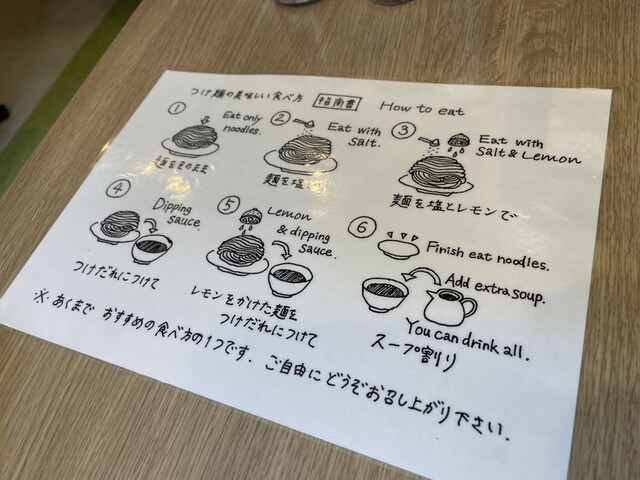 つけ麺の美味しい食べ方 指南書 How to eat
① Eat only
noodles.
麺をそのまま
② Eat with
Salt.
麺を塩で
③ Eat with
Salt & Lemon
麺を塩とレモンで
④ Dipping
sauce.
つけだれにつけて
⑤ Lemon
& dipping
sauce.
レモンをかけた麺を
つけだれにつけて
⑥ Finish eat noodles.
Add extra soup.
You can drink all.
スープ割り
※あくまで おすすめの食べ方の1つです. ご自由にどうぞお召し上がり下さい.